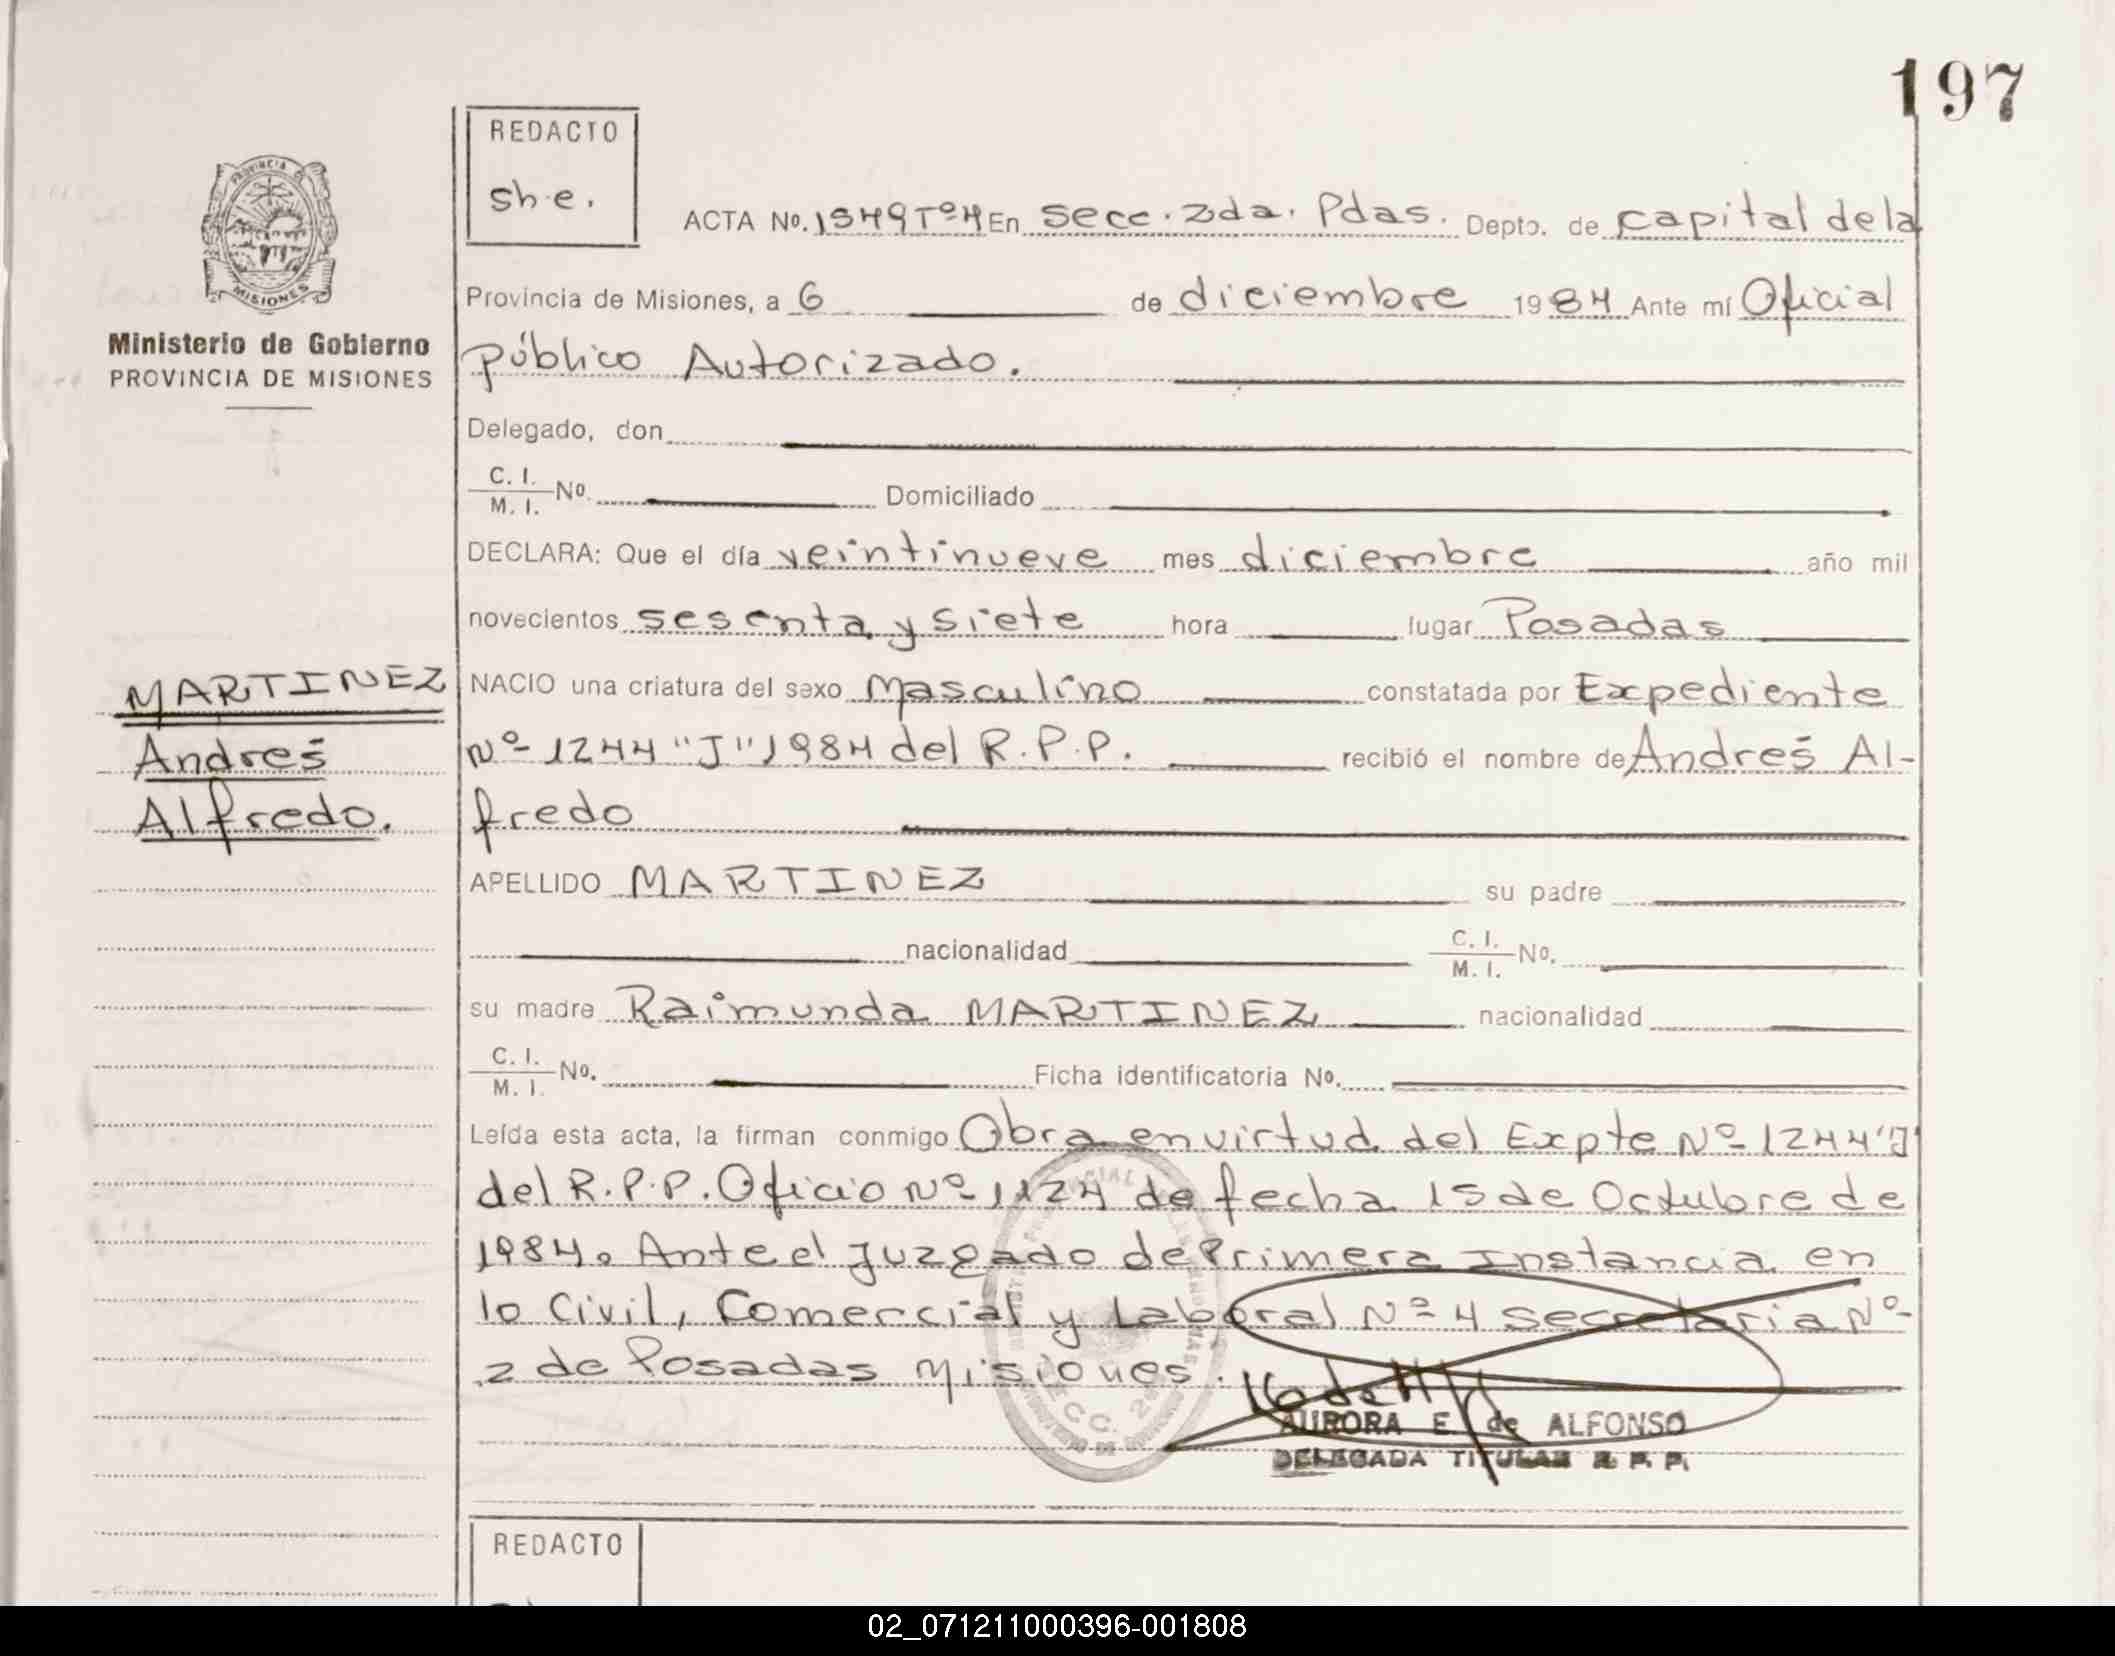 197
REDACTO
sh.e.
ACTA No. 1549 Tº4 En Secc. 2da. Pdas. Depto. de capital de la
PROVINCIA DE
MISIONES
Ministerio de Gobierno
PROVINCIA DE MISIONES
Provincia de Misiones, a 6 de diciembre 1984 Ante mí Oficial
público Autorizado.
Delegado, don
C. I.
M. I. No. Domiciliado
DECLARA: Que el día veintinueve mes diciembre año mil
novecientos sesenta y siete hora lugar Posadas
MARTINEZ
Andrés
Alfredo.
NACIO una criatura del sexo Masculino constatada por Expediente
Nº 1244 "J" 1984 del R.P.P. recibió el nombre de Andrés Al-
fredo
APELLIDO MARTINEZ su padre
nacionalidad C. I.
M. I. No.
su madre Raimunda MARTINEZ nacionalidad
C. I.
M. I. No. Ficha identificatoria No.
Leída esta acta, la firman conmigo Obra en virtud del Expte Nº 1244 "J"
del R.P.P. Oficio Nº 1124 de fecha 15 de Octubre de
1984. Ante el Juzgado de Primera Instancia en
lo Civil, Comercial y Laboral Nº 4 Secretaria Nº
2 de Posadas Misiones.
SECC. 2da
AURORA E. de ALFONSO
DELEGADA TITULAR R. P. P.
REDACTO
02_071211000396-001808